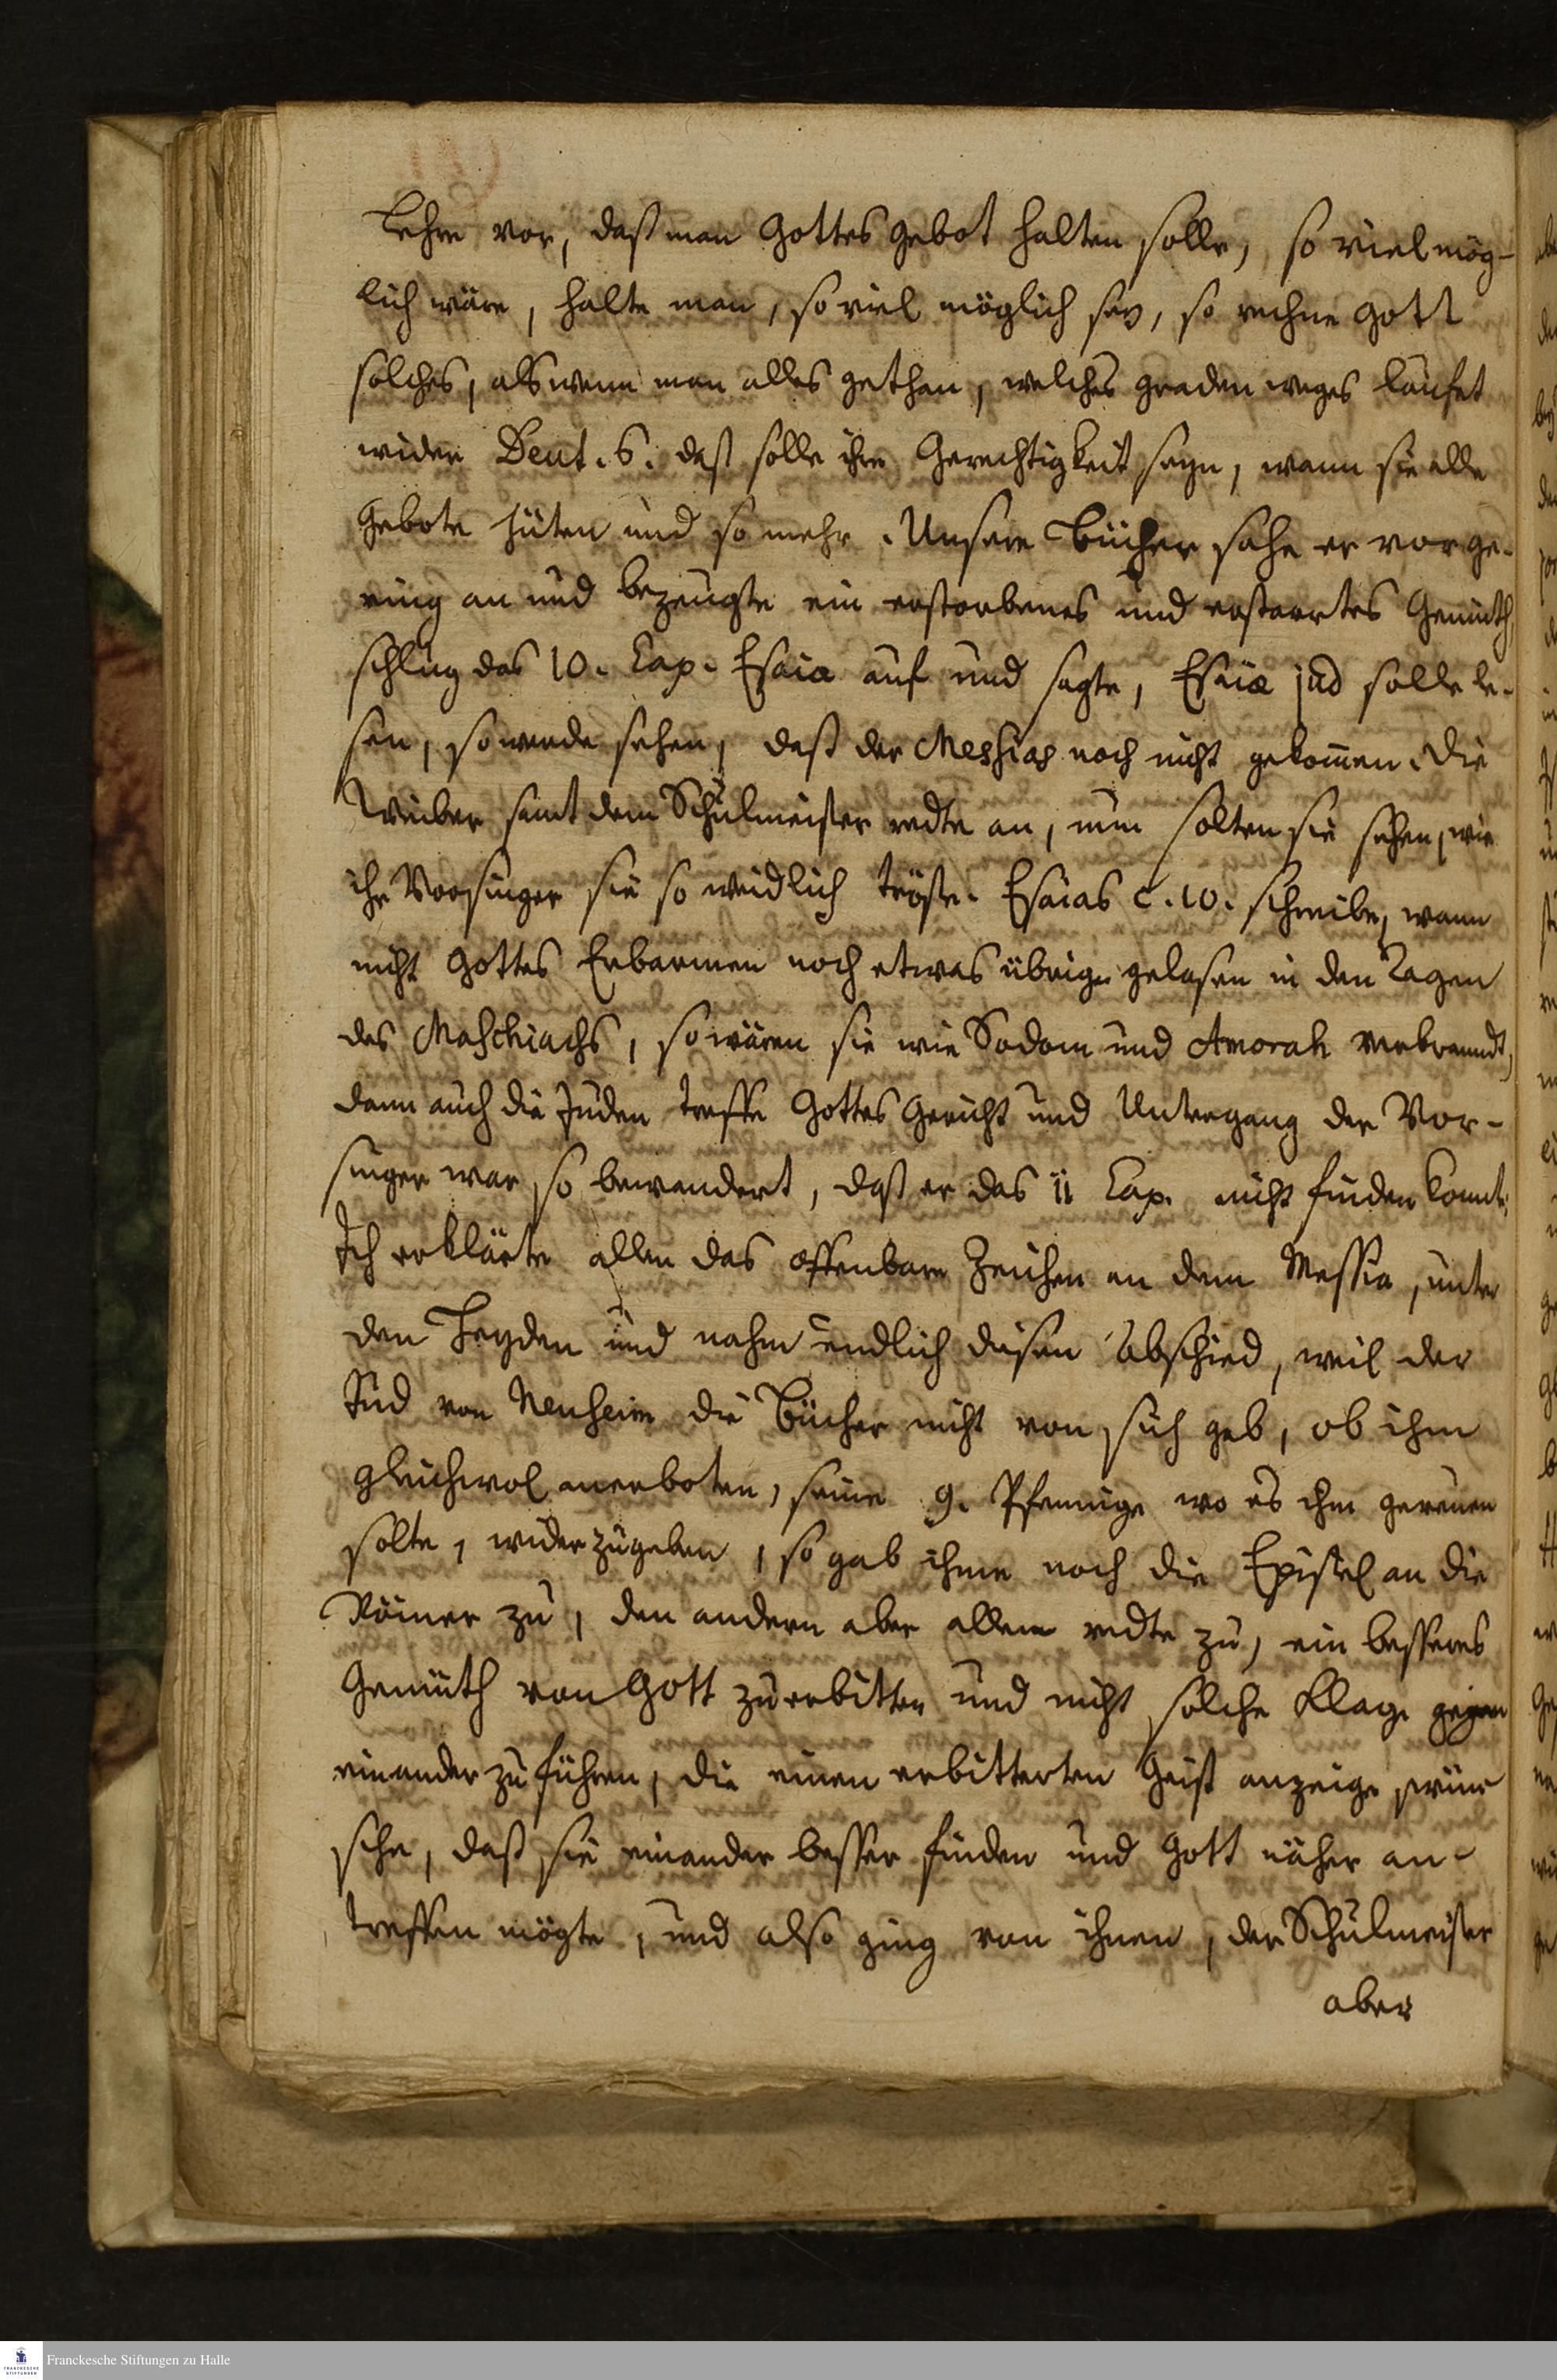 Lehre vor, daß man Gottes Gebot halten solle, so viel mög-
lich wäre, halte man, so viel möglich sey, so rechne Gott
solches, als wenn man alles gethan, welches graden weges laufet
wider Deut. 6. daß solle ihre Gerechtigkeit seyn, wann sie alle
Gebote hüten und so mehr. Unsere Bücher sahe er vor ge-
ring an und bezeugte ein erstorbenes und erstarrtes Gemüth,
schlug das 10. Cap. Esaiæ auf und sagte, Esaiæ jud solle le-
sen, so werde sehen, daß der Messias noch nicht gekom̄en. Die
Weiber samt dem Schulmeister redte an, nun solten sie sehen, wie
ihr Vorsinger sie so weidlich tröste. Esaias c. 10. schreibe, wann
nicht Gottes Erbarmen noch etwas übrige gelasen in den Tagen
des Maschiachs, so wären sie wie Sodom und Amorah verbrenndt,
dann auch die Juden treffe Gottes Gericht und Untergang der Vor-
singer war so bewandert, daß er das 11 Cap. nicht finden konnte,
Ich erklärte allen das offenbare Zeichen an dem Messia, unter
den Heyden und nahm endlich diesen Abschied, weil der
Jud von Neuheim die Bücher nicht von sich geb, ob ihm
gleichwol anerboten, seine 9. Pfennige wo es ihn gereuen
solte, wider zugeben, so gab ihme noch die Epistel an die
Römer zu, den andern aber allen redte zu, ein besseres
Gemüth von Gott zu erbitten und nicht solche Klage gegen
einander zu führen, die einen erbitterten Geist anzeige, wün-
sche, daß sie einander besser finden und Gott näher an-
treffen mögte, und also ging von ihnen, der Schulmeister
aber
Franckesche Stiftungen zu Halle